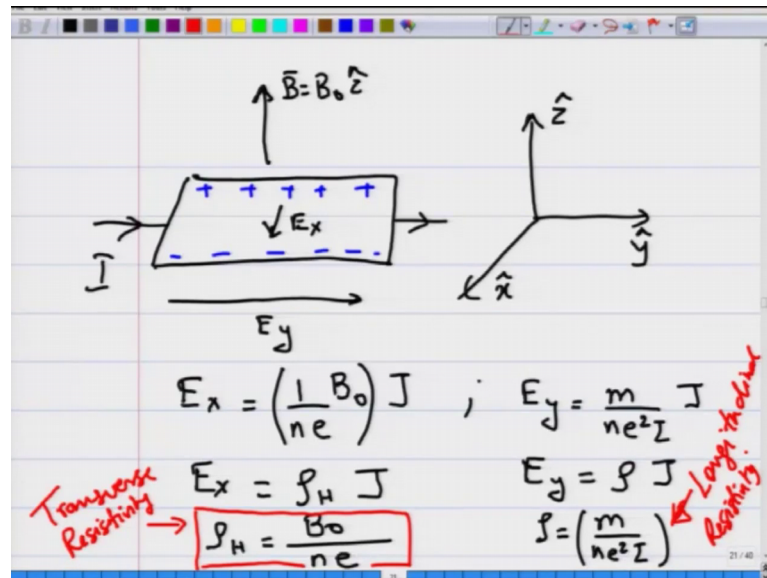 B̄ = B₀ ẑ
ẑ
+ + + + +
Eₓ
I
- - - - - -
ŷ
x̂
E_y
Eₓ = (1/ne B₀) J ; E_y = m/ne²τ J
Eₓ = ρ_H J E_y = ρ J
Transverse Resistivity → ρ_H = B₀/ne ρ = (m/ne²τ) Longitudinal Resistivity
21 / 40